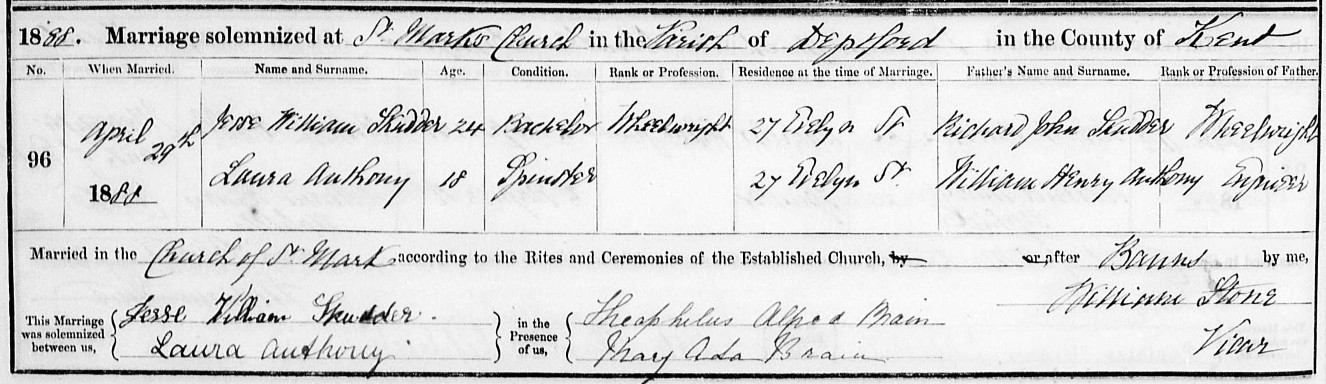 1888. Marriage solemnized at St. Mark's Church in the Parish of Deptford in the County of Kent
No. When Married. Name and Surname. Age. Condition. Rank or Profession. Residence at the time of Marriage. Father's Name and Surname. Rank or Profession of Father.
96 April 29th 1888 Jesse William Skudder 24 Bachelor Wheelwright 27 Evelyn St Richard John Skudder Wheelwright
Laura Anthony 18 Spinster 27 Evelyn St. William Henry Anthony Engineer
Married in the Church of St Mark according to the Rites and Ceremonies of the Established Church, by or after Banns by me,
This Marriage was solemnized between us, Jesse William Skudder. in the Presence of us, Theophilus Alfred Brain William Stone
Laura Anthony Mary Ada Brain Vicar